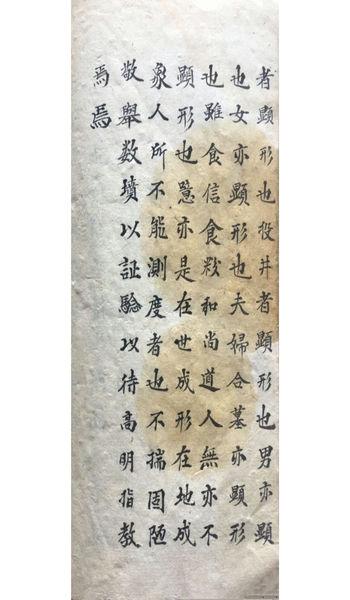 者顯形也投井者顯形也男亦顯
也女亦顯形也夫婦合墓亦顯形
也雖食信食和尚道人無亦不
顯形也亦是在世成形在地成
象人所不能測度者也不揣固陋
敬舉数墳以証驗以待高明指教
焉焉